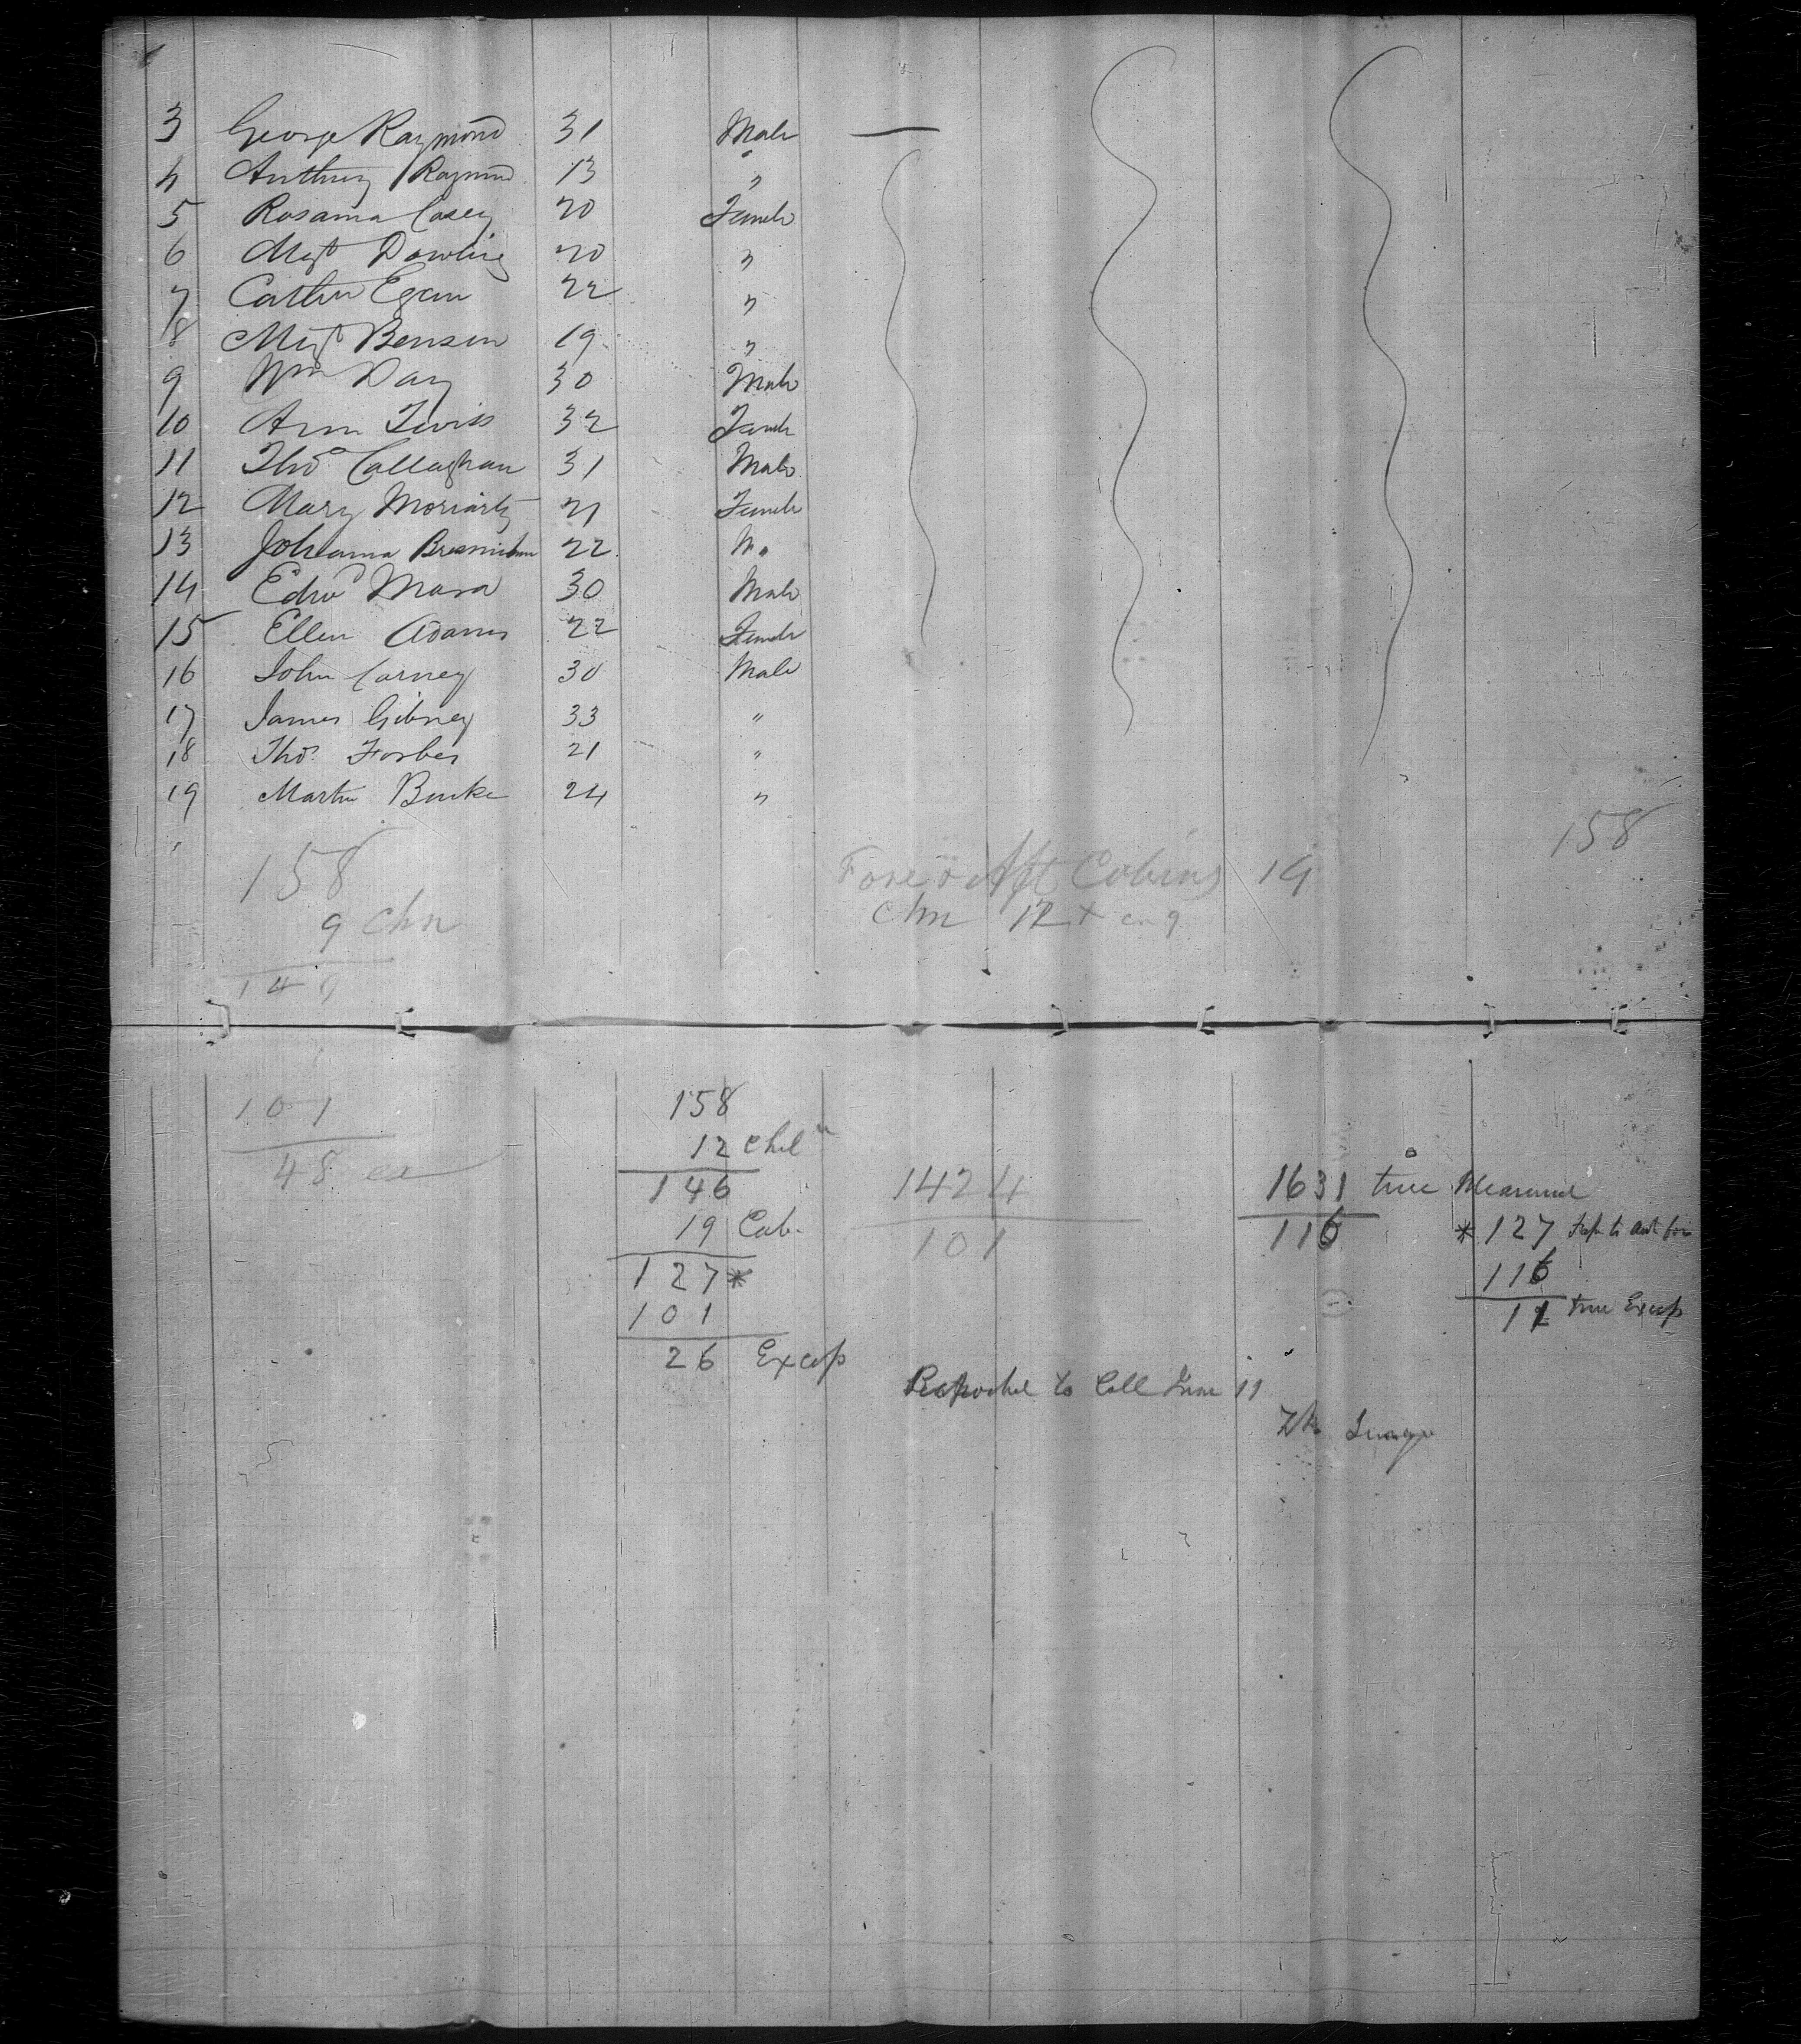 3 George Raymond 31 Male —
4 Anthony Raymond 13 "
5 Rosanna Casey 20 Female
6 Mgt Dowling 20 "
7 Cathn Egan 22 "
8 Mgt Benson 19 "
9 Wm Day 30 Male
10 Ann Twiss 32 Female
11 Thos Callaghan 31 Male
12 Mary Moriarty 21 Female
13 Johanna Bresnihan 22
14 Edwd Mara 30 Male
15 Ellen Adams 22 Female
16 John Carney 30 Male
17 James Gibney 33 "
18 Thos Forbes 21 "
19 Martin Burke 24 "
158 158
Fore & Aft Cabins 19
9 Chn Chn 12
149
101 158
12 Chln
48 ex 146 1424 1631 true Measurmt
19 Cab. 101 116 * 127
127 * 116
101 true Excess
26 Excess
Reported to Coll June 11